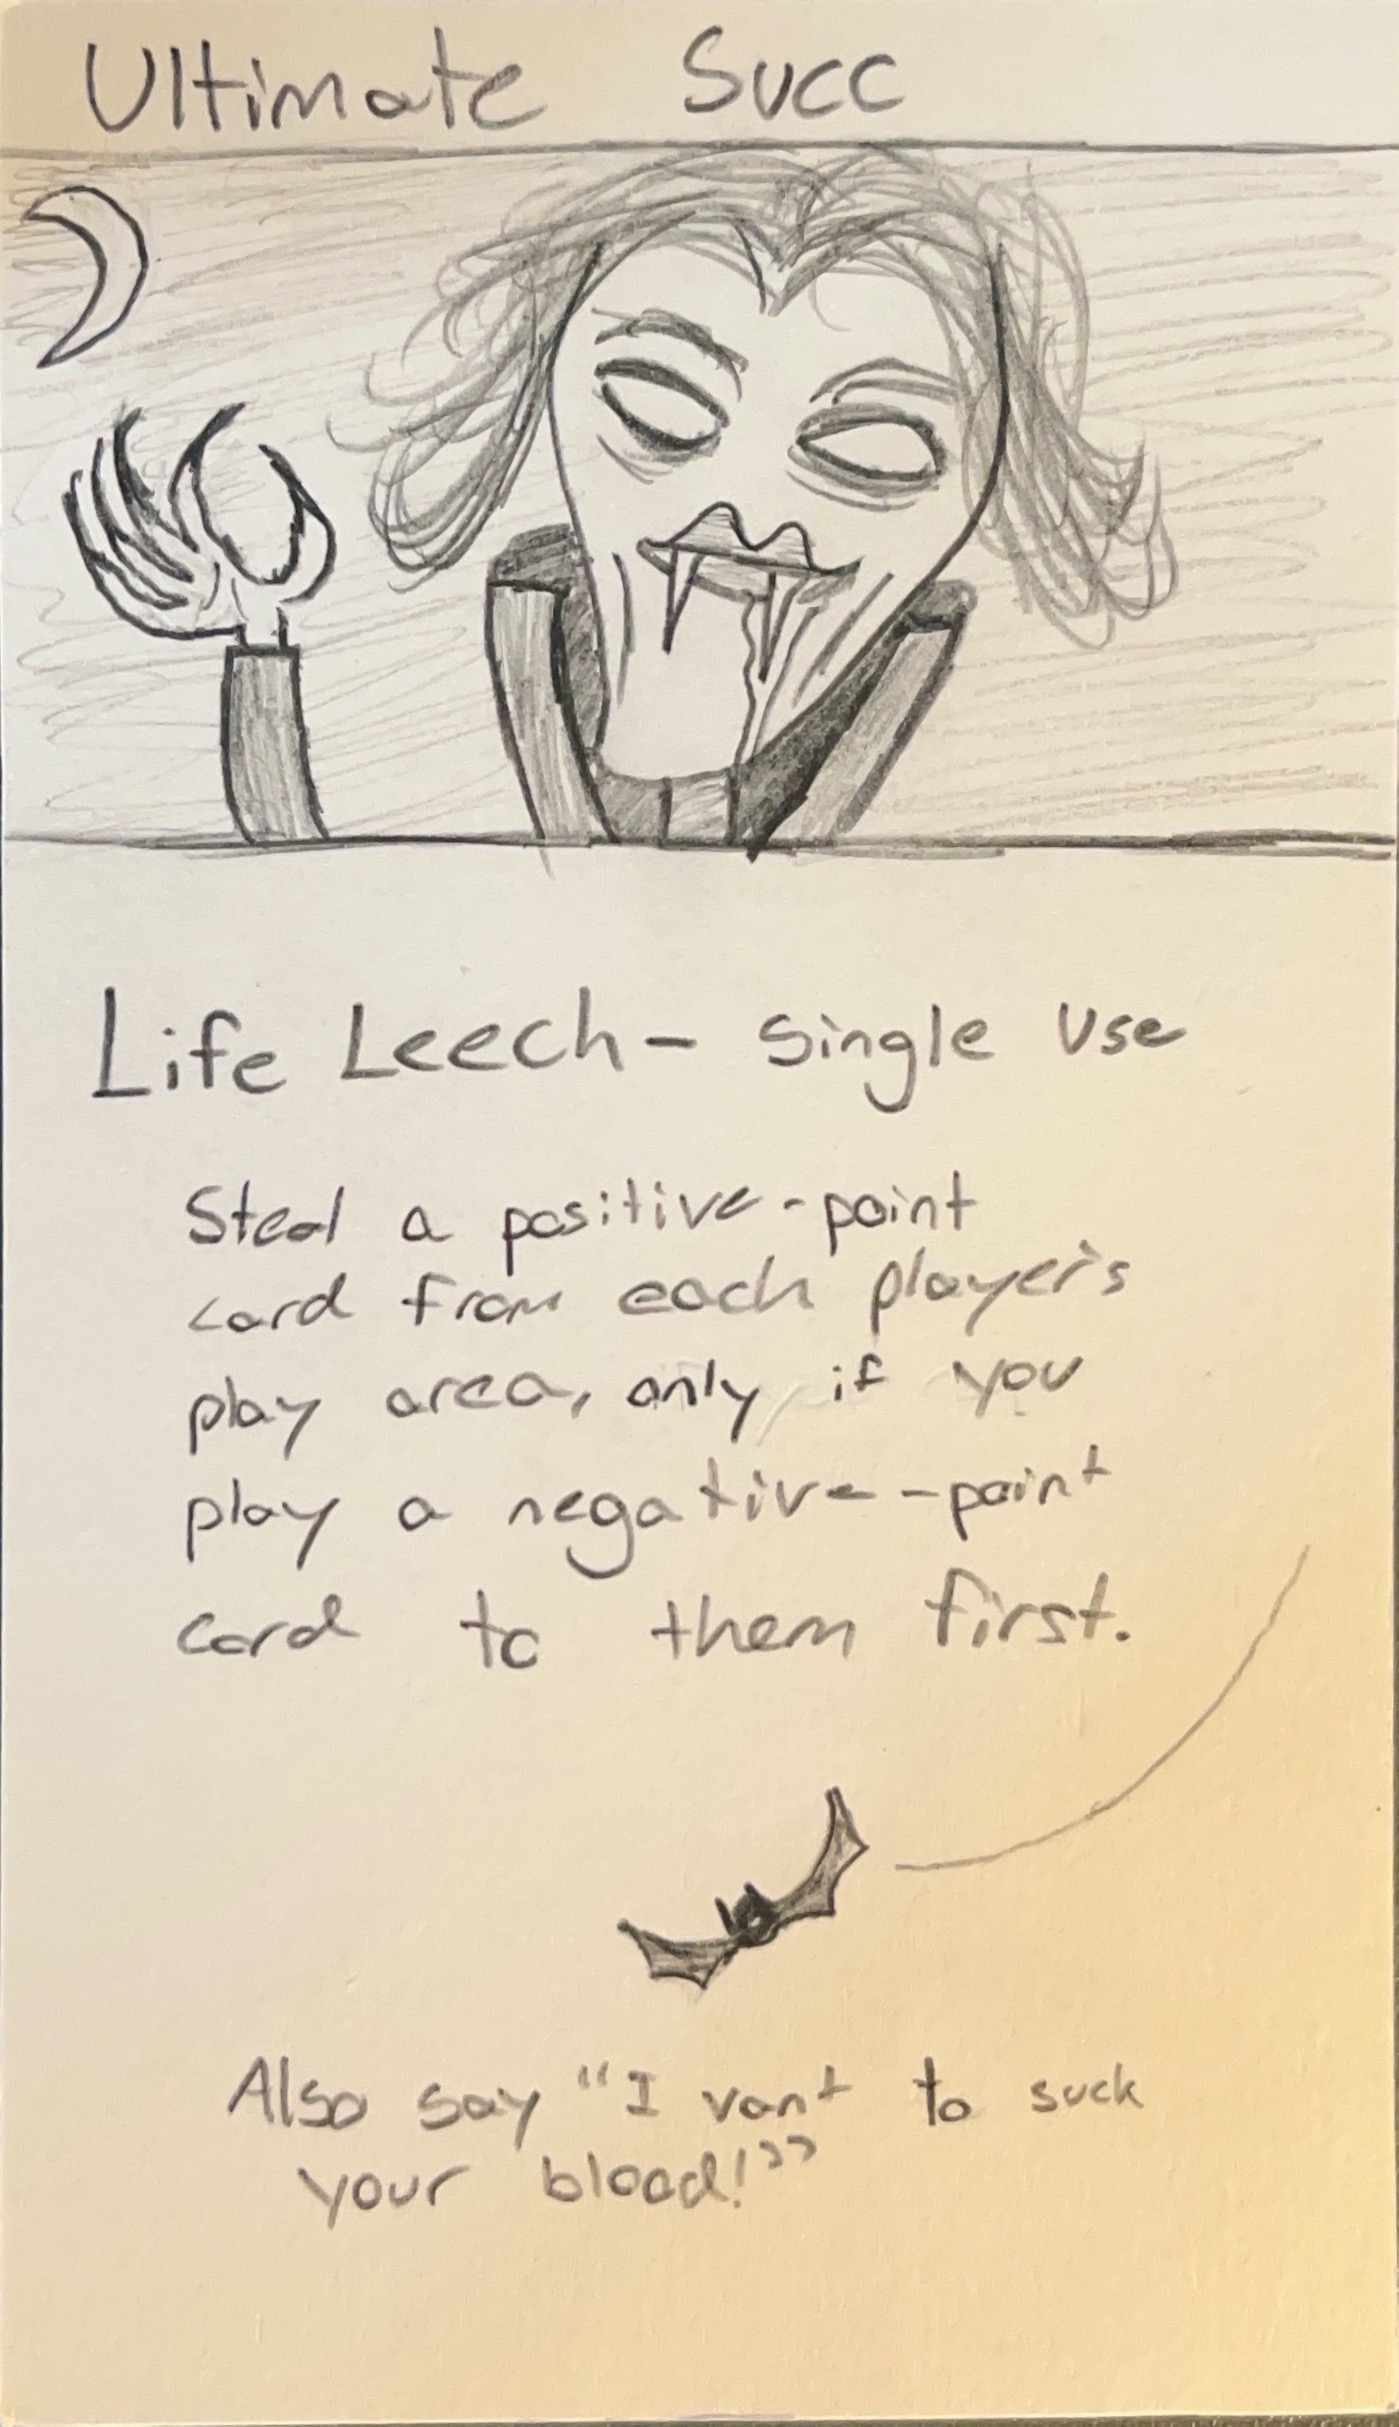 Ultimate Succ
Life Leech - Single Use
Steal a positive-point
card from each player's
play area, only if you
play a negative-point
card to them first.
Also say "I vant to suck
your blood!"